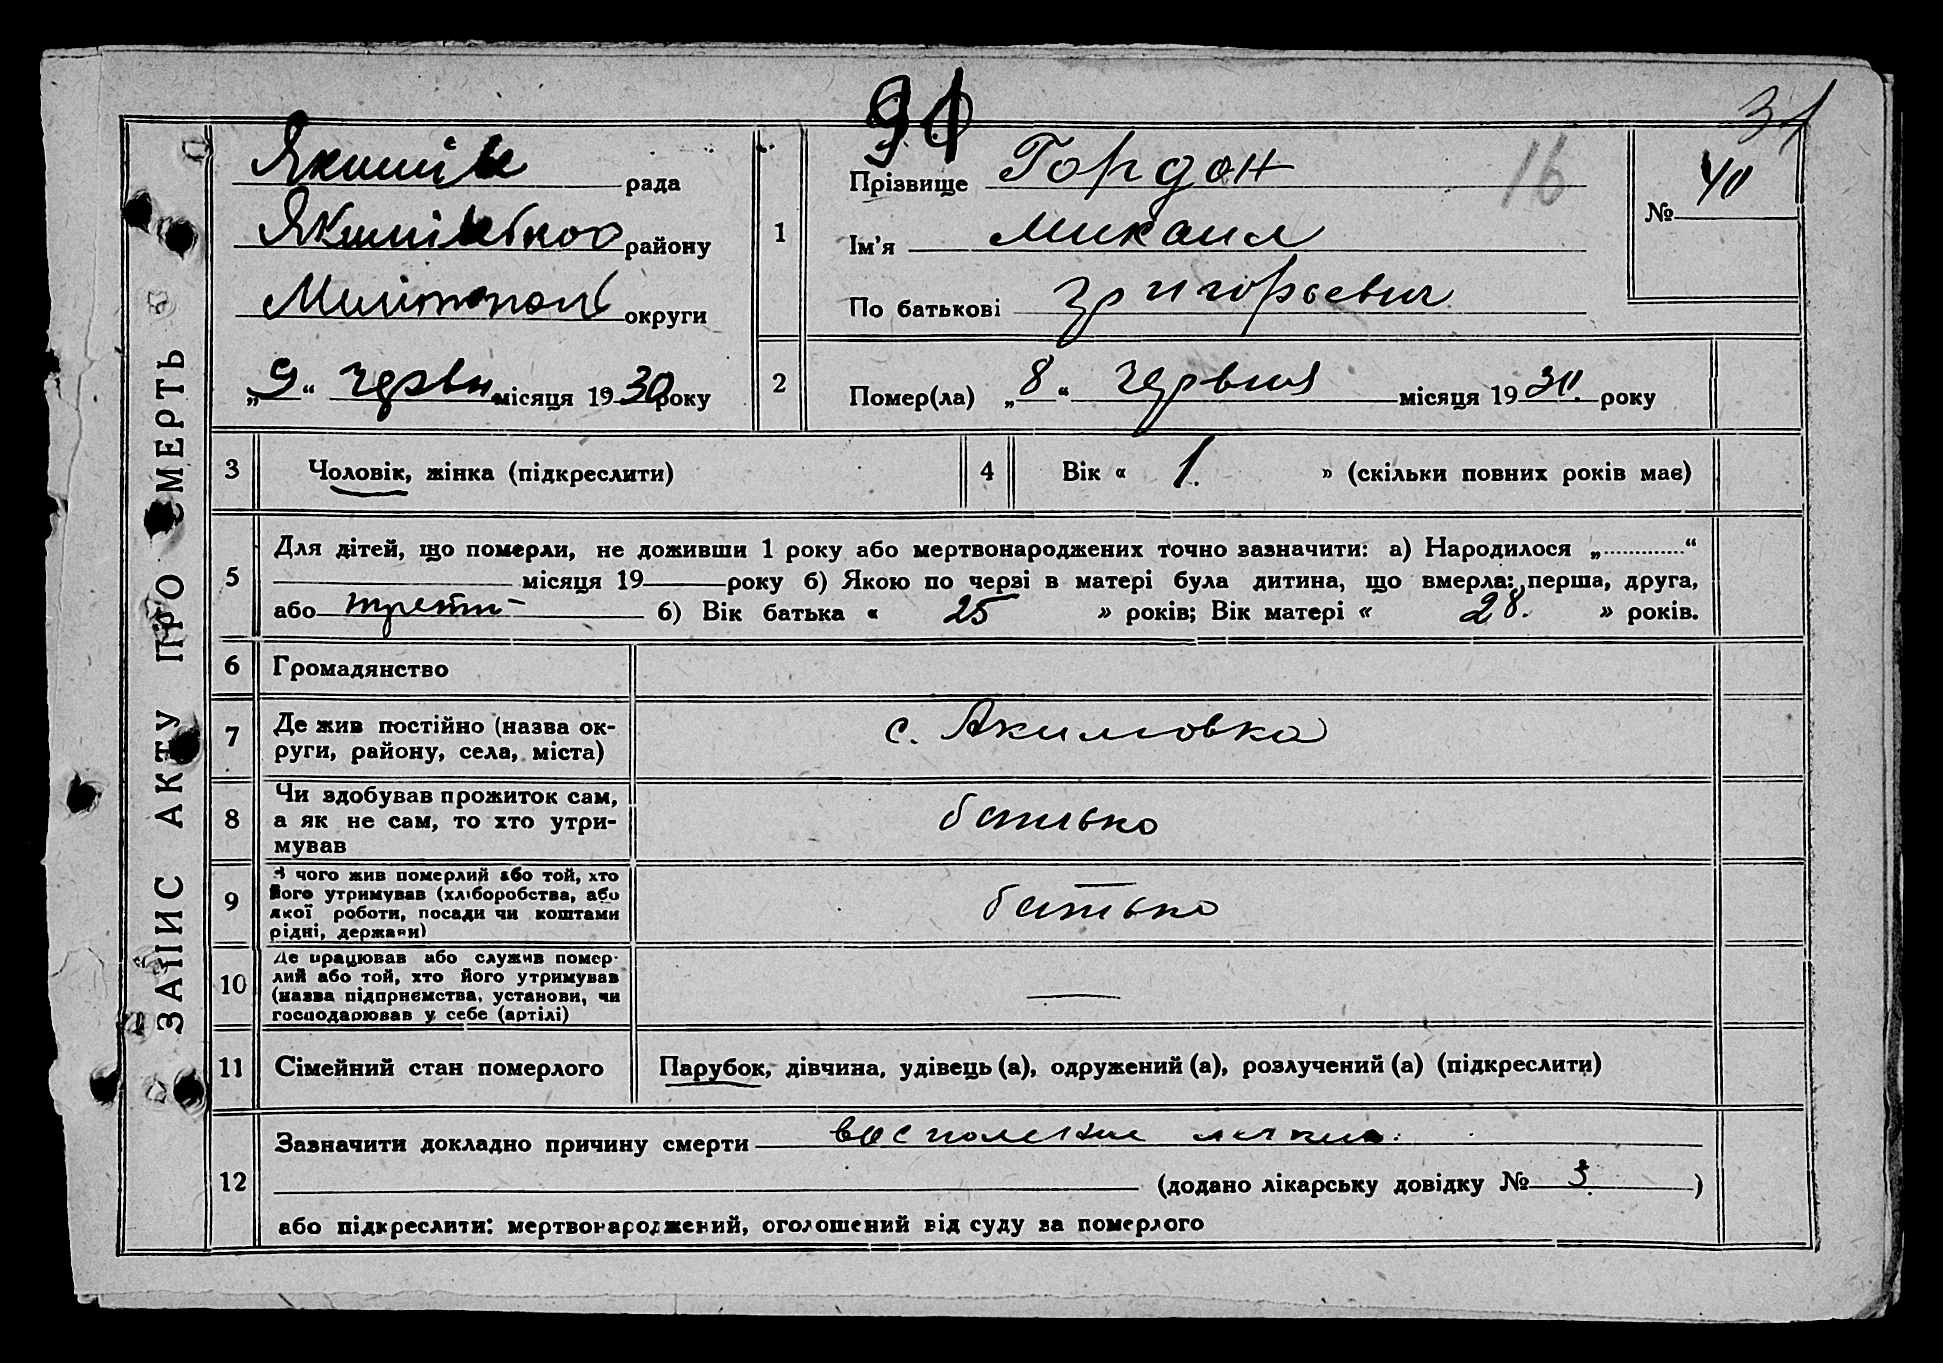 91
31
16
№ 40
ЗАПИС АКТУ ПРО СМЕРТЬ
Якимів рада
району
Миліитополь округи
„9“ червн місяця 1930 року
1
Прізвище Гордон
Ім’я Михаил
По батькові Григорьевич
2
Помер(ла) „8“ червня місяця 1930. року
3 Чоловік, жінка (підкреслити)
4 Вік « 1. » (скільки повних років має)
5 Для дітей, що померли, не доживши 1 року або мертвонароджених точно зазначити: а) Народилося „.............“
місяця 19 року б) Якою по черзі в матері була дитина, що вмерла: перша, друга,
або трети- б) Вік батька « 25 » років; Вік матері « 28. » років.
6 Громадянство
7 Де жив постійно (назва ок-
руги, району, села, міста)
с. Акимовка
8 Чи здобував прожиток сам,
а як не сам, то хто утри-
мував
батько
9 З чого жив померлий або той, хто
його утримував (хліборобства, або
якої роботи, посади чи коштами
рідні, держави)
батько
10 Де працював або служив помер-
лий або той, хто його утримував
(назва підприємства, установи, чи
господарював у себе (артілі)
—
11 Сімейний стан померлого
Парубок, дівчина, удівець (а), одружений (а), розлучений (а) (підкреслити)
12 Зазначити докладно причину смерти восполение легких.
(додано лікарську довідку № 3 )
або підкреслити: мертвонароджений, оголошений від суду за померлого